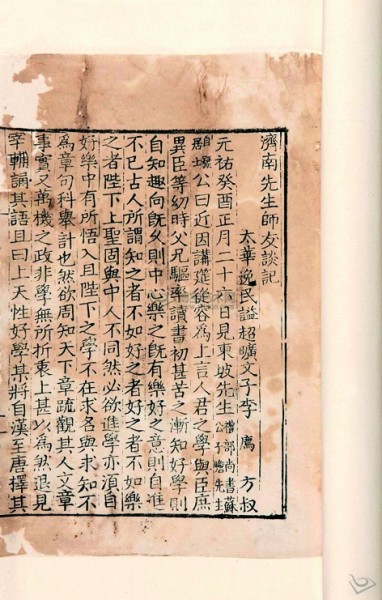 濟南先生師友談記
太華逸民謚超曠文子李廌方叔
元祐癸酉正月二十日見東坡先生禮部尚書蘇公子瞻先生
公曰近因講筵從容為上言人君之學與臣庶
異臣等幼時父兄驅率讀書初甚苦之漸知好學則
自知趣向既久則中心樂之既有樂好之意則自進
不已古人所謂知之者不如好之者好之者不如樂
之者陛下上聖固與中人不同然必欲進學亦須自
好樂中有所悟入且陛下之學不在求名與求知不
為章句科舉計也然欲周知天下章疏觀其人文章
事實又萬機之政非學無所折衷上甚以為然退見
宰輔誦其語且曰上天性好學某將自漢至唐擇其